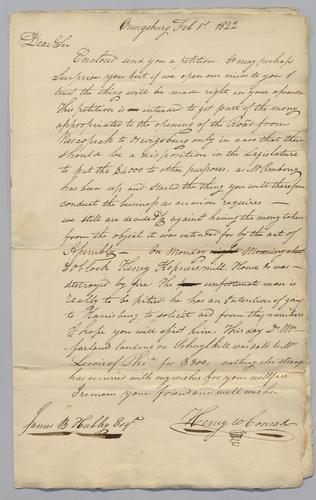 Orwigsburg Feb 1st 1822
Dear Sir
Enclosed send you a petition. it may perhaps
Surprise you but if we open our views to you I
trust the thing will be made right in your opinion
This petition is intended to get part of the money
appropriated to the opening of the Road from
Nescopeck to Orwigsburg only in case that there
should be a disposition in the Legislature
to put the $4000 to other purposes, a Mr
has been up and started the thing you will therefore
conduct the business as occasion requires —
we still are decidedly against having the money taken
from the object it was intended for by the act of
Assembly — On Monday Morning about
3 oClock Henry mill House &c was
destroyed by fire. The unfortunate man is
really to be pitied he has an intention of going
to Harrisburg to solicit aid from the members
I hope you will assist him, This day
landing on Schuylkill was sold to Mr
Lewis of Phia for $900, nothing else strange
has occurred with my wishes for your wellfare
I remain your friend and well wisher
James B Hubley Esqr
Henry W Conrad